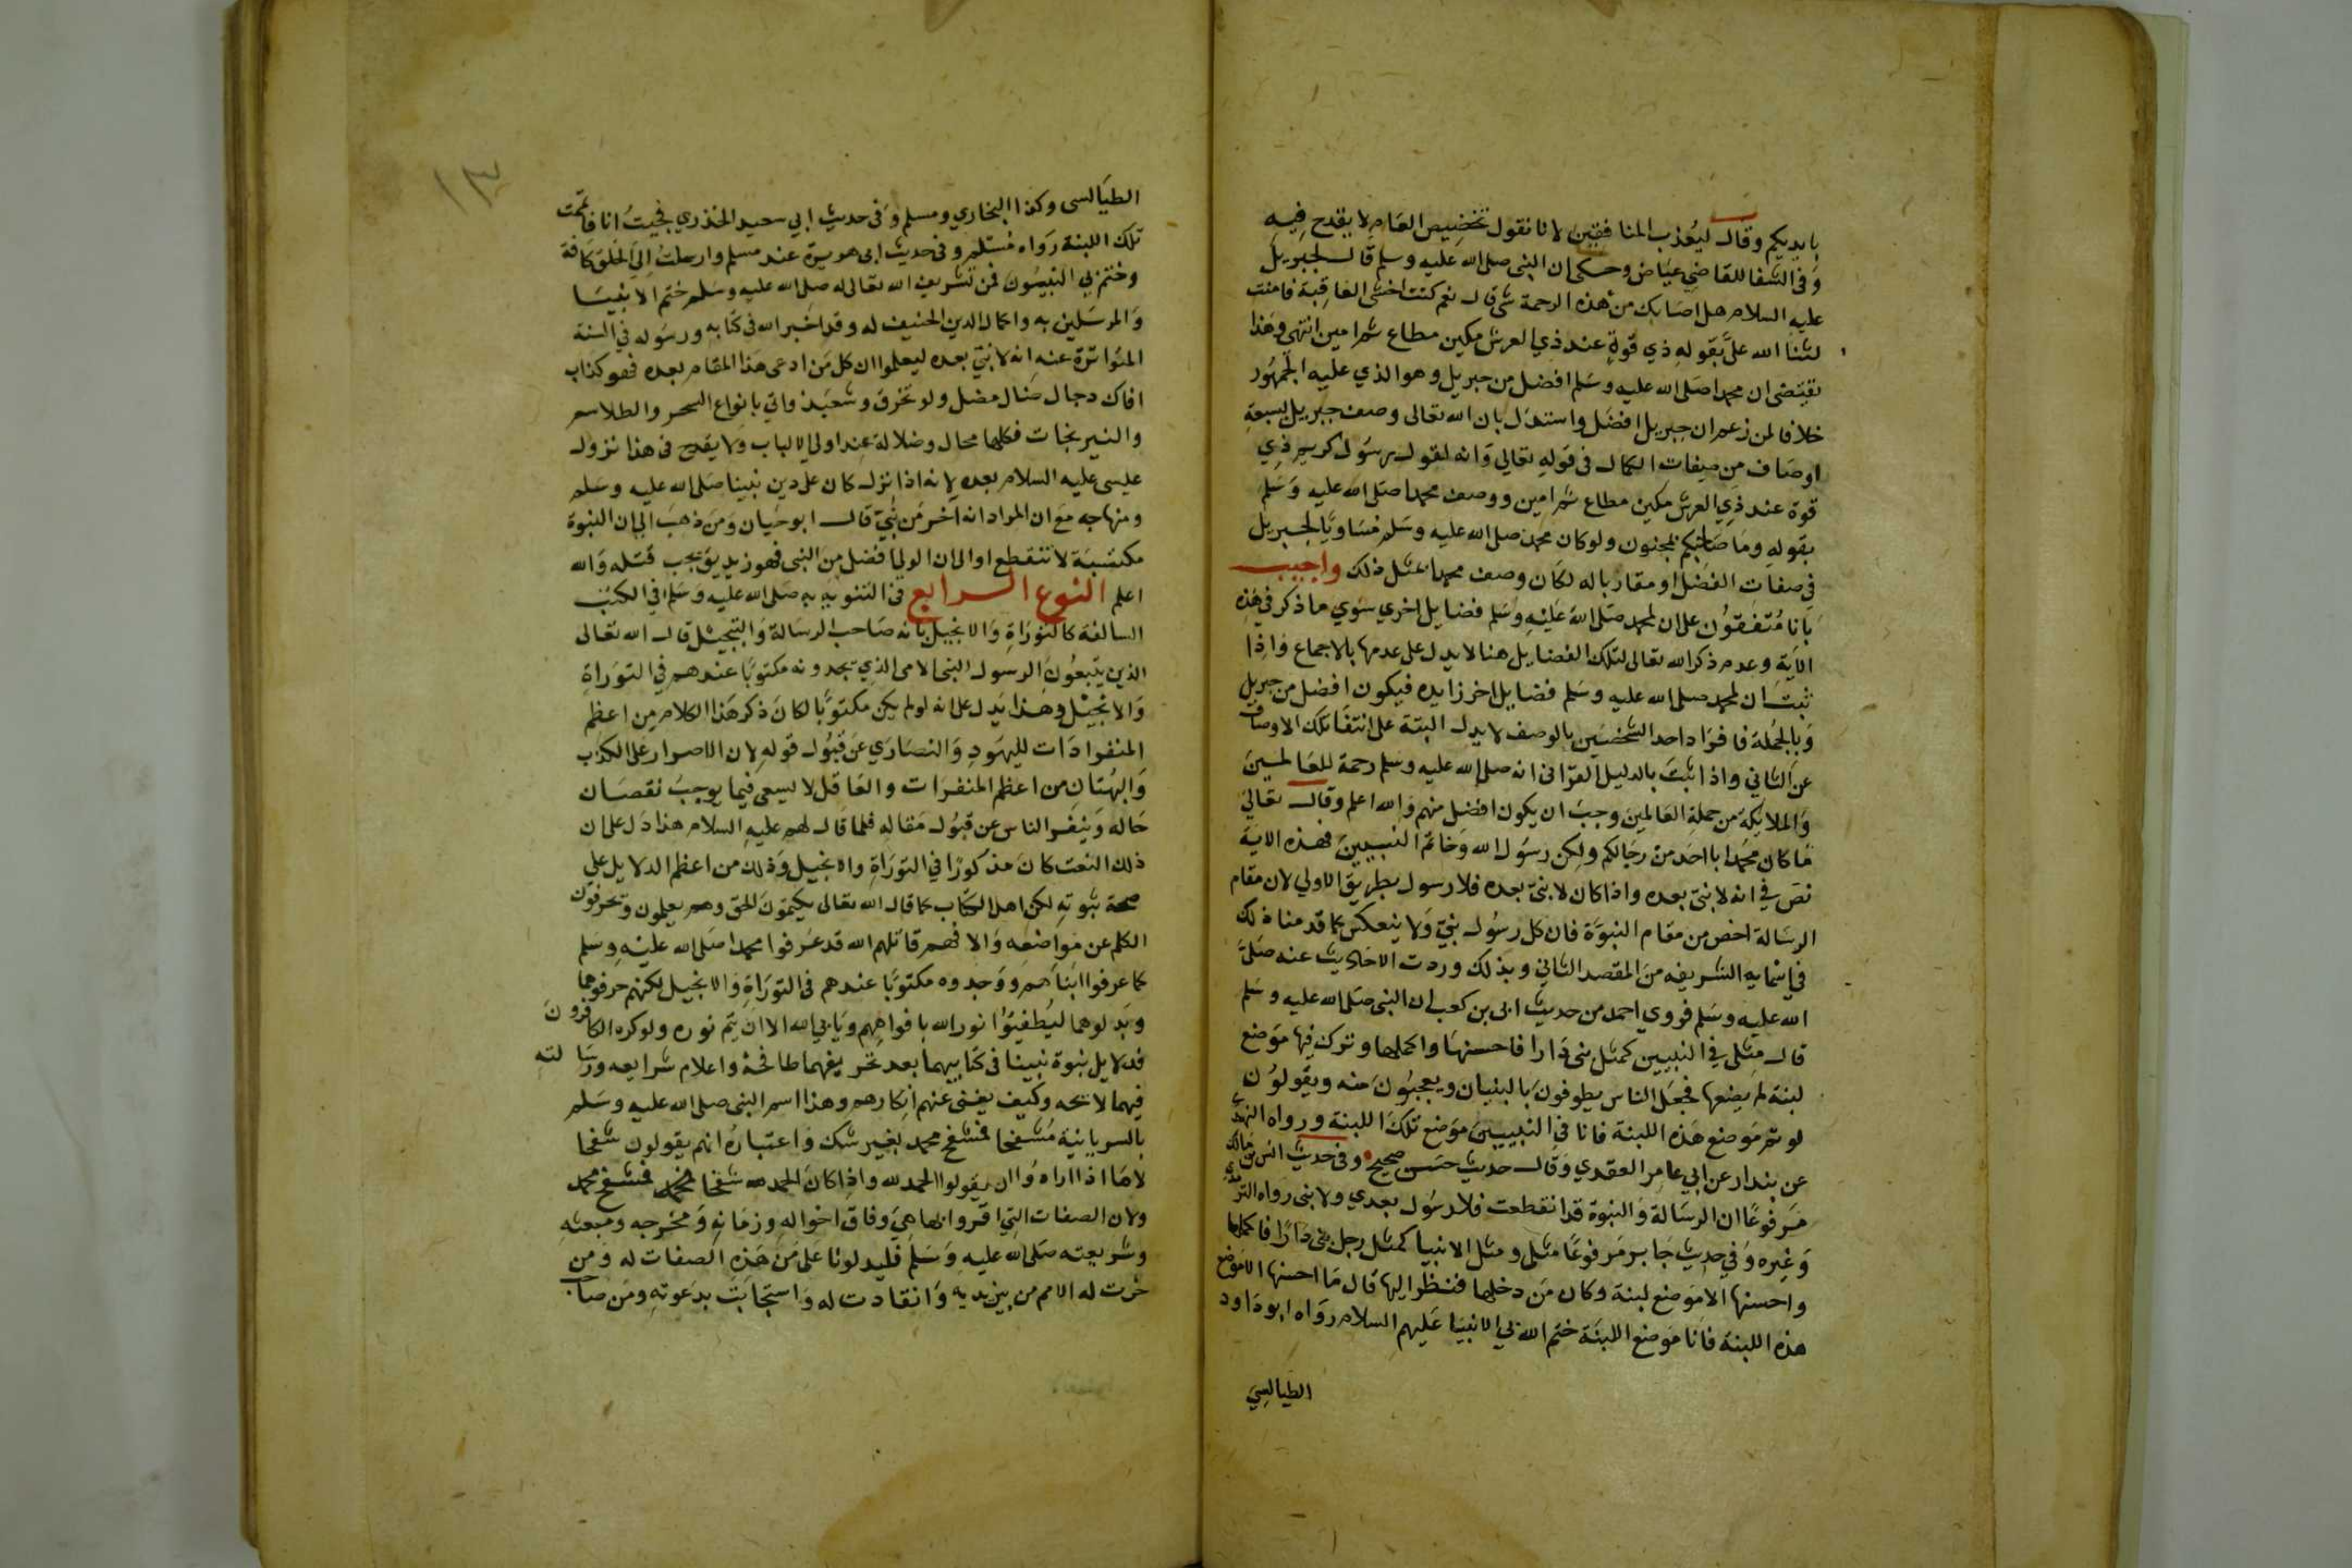 بايديكم وقال ليعذب المنافقين لانا نقول تخصيص العام لا يقدح فيه
وَفي الشفا للقاضي عيَاض وحكى ان النبى صلى الله عليه وسلم قال لجبريل
عليه السلام هل اصَابك من هذه الرحمة شى قال نعم كنت اخشى العَاقبة فامنت
لثنا الله علىَّ بقوله ذي قوةٍ عند ذي العرش مكين مطاع ثم امين انتهى وهَذا
يقتضى ان محمدا صلى الله عليه وسَلم افضل من جبريل وهو الذي عليه الجمهُور
خلافا لمن زعم ان جبريل افضَل واستدَل بان الله تعالى وصف جبريل بسبعة
اوصَاف من صِفات الكمال فى قوله تعالي وَانه لقول رسُول كريم ذي
قوة عند ذي العرش مكين مطاع ثم امين ووصف محمدا صلى الله عليه وَسَلم
بقوله ومَا صَاحبكم بمجنون ولو كان محمد صلى الله عليه وسَلم مسَاويًا لجبريل
فى صفات الفضل او مقاربا له لكان وصف محمدا بمثل ذلك واجيب
بَانا مُتفقوُن على ان لمحمد صلى الله عليه وسَلم فضايل اخري سوي ما ذكر في هَذِه
الاية وعدم ذكر الله تعالى لتلك الفضايل هنا لا يدل على عدمها بالاجماع وَاِذا
ثبتَ ان لمحمد صلى الله عليه وسَلم فضايل اخر زايده فيكون افضل من جبريل
وَبالجُملة فافرَاد احد الشخصَين بالوصف لا يدل البتة على انتفَا تلك الاوصاف
عن الثاني واذا ثبتَ بالدليل القرانى انه صلى الله عليه وسلم رحمة للعَالمينَ
وَالملايكة من جملة العَالمِين وجبَ ان يكون افضل منهم وَالله اعلم وقال تعَالى
مَا كان محمدا ابا احَد من رجَالكم ولكن رسُول الله وَخاتم النبيين فهذه الاية
نصَ في انه لا نبىّ بعده واذا كان لا نبىّ بعده فلا رسول بطريق الاولي لان مقام
الرسَالة اخص من مقام النبوَّة فان كل رسُول نبيّ وَلا ينعكس كما قدمنا ذلك
في اسمايه الشريفه من المقصد الثاني وبذلك وردت الاحَاديث عنه صَلىَّ
الله عليه وسَلم فروي احمد من حديث ابى بن كعب ان النبى صلى الله عليه وسَلم
قال مثلى في النبيين كمثل بنى دَارا فاحسنهَا واكملها وترك فِيها موَضع
لبنة لم يضعها فجعَل الناس يطوفونَ بالبنيان ويعجبُونَ منه ويقُولوُن
لو تم مَوضع هَذه اللبنة فانا فى النبيينَ موَضع تلكَ اللبنة ورواه الترمذي
عن بندار عن ابي عامر العقدي وَقال حديث حسَن صحيح وفى حديث انس بن مَالك
مَرفوعًا ان الرسَالة وَالنبوة قد انقطعت فلا رسُول بعدي ولا نبى رَواه الترمذي
وَغيره وَفي حديث جَابر مَرفوعًا مثلى ومثل الانبيا كمثل رجل بنى دَارًا فاكملها
واحسنها الا مَوضع لبنة وكان مَن دخلها فنظر اليها قال مَا احسنها الا موَضع
هذه اللبنة فَانَا موَضع اللبنَة ختم الله بي الانبيَا عَليهم السلام رَواه ابو دَاود
الطيالسِيَ
١٣
الطيَالسى وكذا البخاري ومسلم وَفى حديث ابي سعيد الخدري فجيتُ انا فاتممت
تلك اللبنة رَواه مُسلم وفى حديث ابى هريرة عند مسلم وارسلتُ اِلى الخلق كافة
وختم بي النبيُون فمن تشريف الله تعالى له صلى الله عليه وسَلم ختم الانبيَا
وَالمرسَلين به واكمال الدين الحنيف له وقد اخبر الله فى كتابه ورسُوله في السنة
المتوَاترَة عنه انه لا نبيّ بعده ليعلموا ان كل مَن ادعى هَذا المقَام بعده فهو كذاب
افاك دجال ضَال مضل ولو تخرق وشعبذ واتي بانواع السحر والطلاسم
والنيرنجات فكلها محال وضلالة عِند اولي الالباب وَلا يقدح فى هذا نزول
عيسى عليه السلام بعده لانه اذا نزل كان على دين نبينا صلى الله عليه وسَلم
ومنهاجه مَع ان المراد انه اخر مَن نُبّىَ قال ابو حَيان وَمَن ذهبَ الى ان النبوة
مكتسَبَة لا تنقطع او الى ان الولى افضل مِن النبى فهو زنديق يجب قتله وَالله
اعلم النوع الرابع فى التنويه به صَلى الله عليه وسَلم في الكتب
السالفة كالتورَاةِ وَالانجيل بانه صَاحب الرسَالة وَالتبجيل قال الله تعالى
الذين يتبعُونَ الرسول النبى الامى الذي يجدونه مكتوبًا عندهم في التورَاةِ
وَالانجيل وهذا يَدل على انه لو لم يكن مكتوبًا لكانَ ذكر هَذا الكلام مِن اعظم
المنفرادَات لليهَودِ وَالنصَارَي عَن قبُول قوله لان الاصرار على الكذب
وَالبهُتان من اعظم المنفرات والعَاقل لا يسعى فيما يوجبَ نقصَان
حَاله وَينفر الناس عن قبُول مَقاله فلما قال لهم عليه السلام هذا دَل على ان
ذلك النعت كانَ مذكورًا في التورَاةِ والانجيل وَذلكَ من اعظم الدلايل على
صحة نبوته لكن اهل الكتاب كما قال الله تعالى يكتمونَ الحق وهم يعلمون ويحرفون
الكلم عن مَواضعه وَالا فهم قاتلهم الله قد عَرفوا محمدا صَلى الله عليه وسَلم
كما عرفوا ابنَاهم ووَجدوه مكتوبًا عندهم فى التورَاةِ وَالانجيل لكنهم حرفوهما
وبَدلوهما ليُطفِئُوا نور الله بافواههم ويَابي الله الا ان يتم نوره ولو كره الكافرون
فدلايل نبوة نبينا فى كتابيهما بعد تحريفهما طافحة واعلام شرايعه ورسَالته
فيهما لايحه وكيف يغنى عنهم انكارهم وهذا اسم النبى صلى الله عليه وسَلم
بالسريانية مُشفحا فمشفح محمد بغير شك وَاعتبارُه انهم يقولون شفحا
لاهَا اذا ارادُوا ان يقولوا الحمد لله واذا كانَ الحمد شفحا فمشفح محمد
ولان الصفات التي اقروا بها هيَ وفاق احوَاله وزمَانه وَمخرجه ومبعثه
وشريعته صَلى الله عليه وَسَلم فليدلونا عَلى مَن هَذِه الصفات له وَمن
خرت له الامم من بين يديه وَانقادت له وَاستجابَت بدَعوته ومَن صاحب